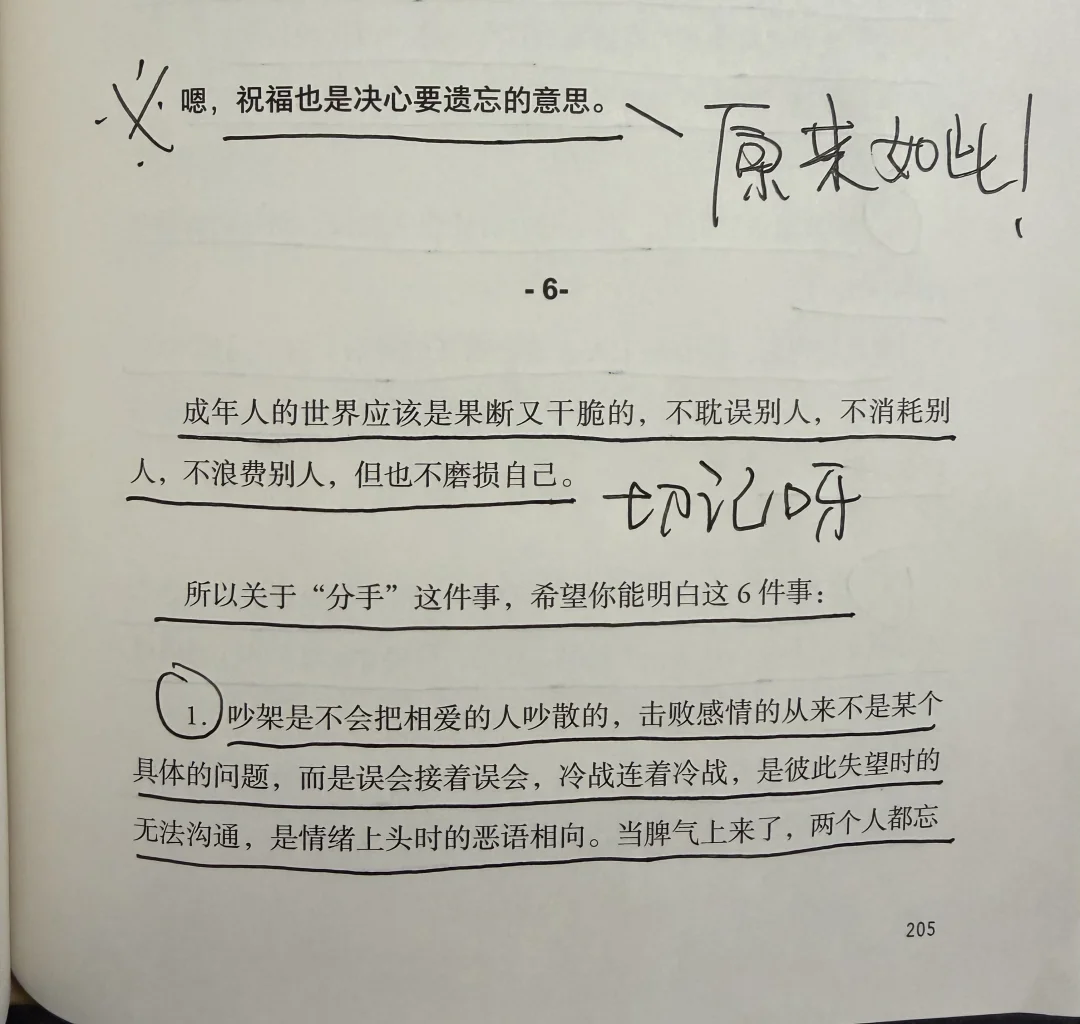 嗯，祝福也是决心要遗忘的意思。
原来如此！
-6-
成年人的世界应该是果断又干脆的，不耽误别人，不消耗别
人，不浪费别人，但也不磨损自己。
切记呀
所以关于“分手”这件事，希望你能明白这6件事：
1. 吵架是不会把相爱的人吵散的，击败感情的从来不是某个
具体的问题，而是误会接着误会，冷战连着冷战，是彼此失望时的
无法沟通，是情绪上头时的恶语相向。当脾气上来了，两个人都忘
205